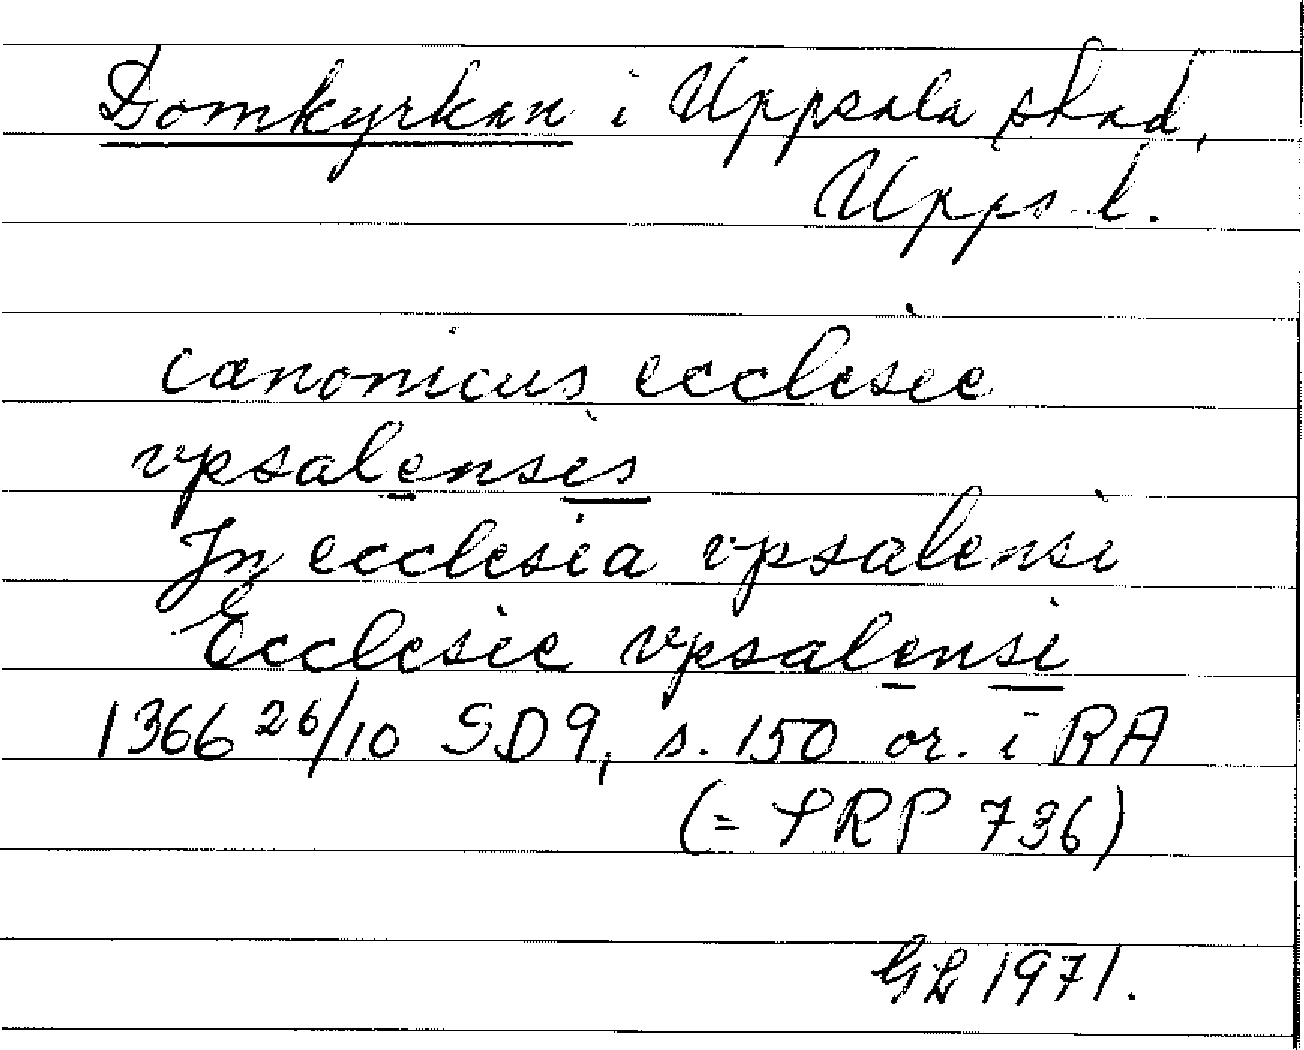 Domkyrkan i Uppsala stad,
Upps. l.
canonicus ecclesie
vpsalensis
In ecclesia vpsalensi
Ecclesie vpsalensi
1366 26/10 SD9, s. 150 or. i RA
(= SRP 736)
GL 1971.